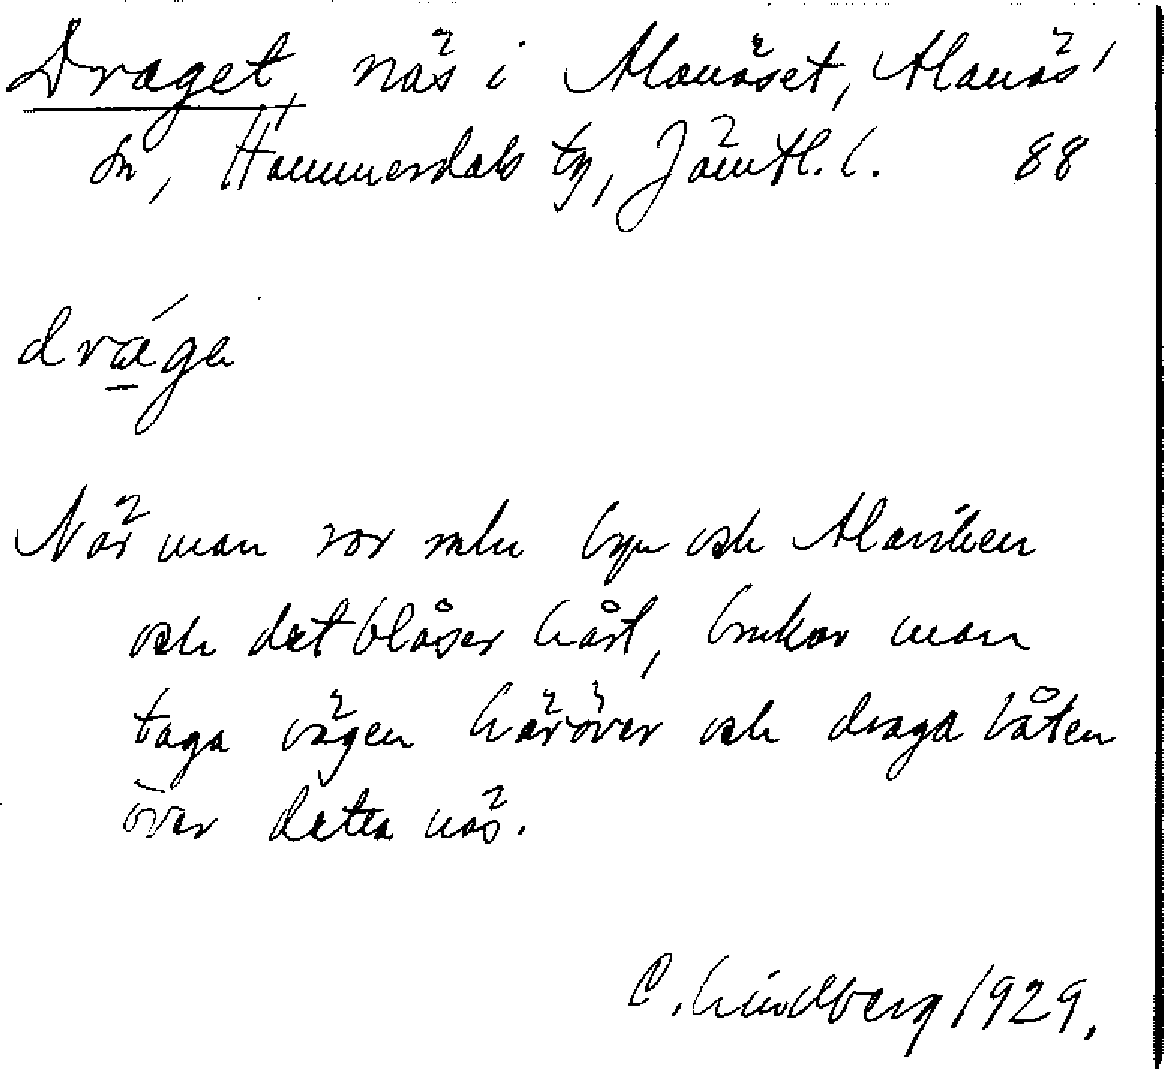 Draget, näs i Alanäset, Alanäs
sn, Hammerdals tg, Jämtl. l. 88
drága
När man ror mln byn och Alaviken
och det blåser hårt, brukar man
taga vägen häröver och draga båten
över detta näs.
C. Lindberg 1929.